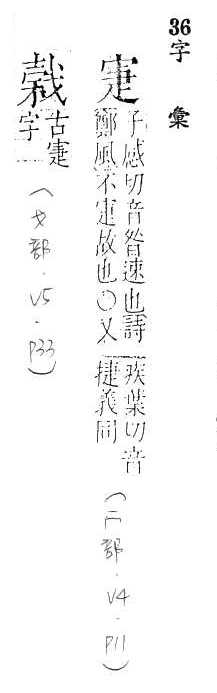 36
字彙
寁
子感切音昝速也詩
鄭風不寁故也○又
疾葉切音
捷義同
(宀部.V4.P11)
古寁
字
(戈部.V5.P33)